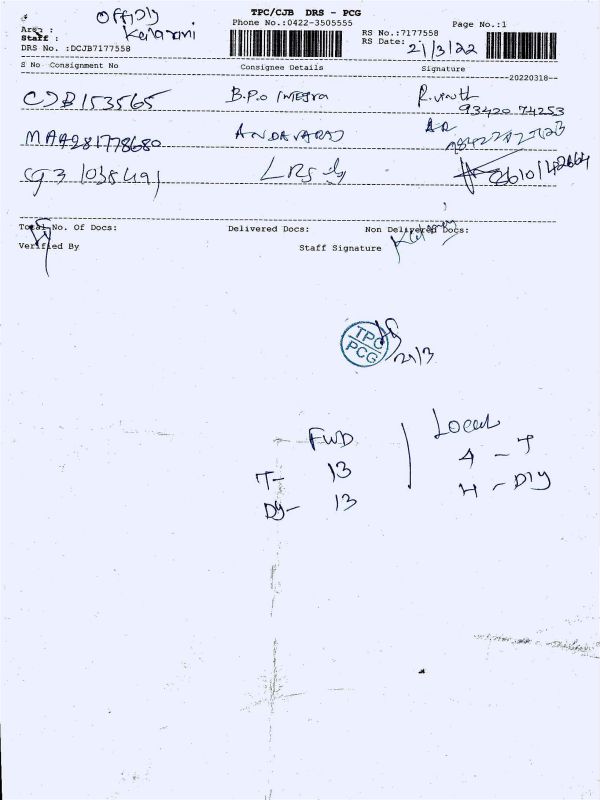 TPC/CJB DRS - PCG
Phone No.:0422-3505555
Page No.:1
Area :
Staff : Kalarani
RS No.:7177558
RS Date: 21/3/22
DRS No. :DCJB7177558
S No Consignment No Consignee Details Signature
20220318
CJB153565 B.P.O INTEGRA R.
93420 74253
MAA281778680 ANDAVARAJ
LRS
Total No. Of Docs: Delivered Docs: Non Delivered Docs:
Verified By Staff Signature
TPC
PCG
21/3
FWD Local
T- 13 4 - T
Dy- 13 4 - Dly